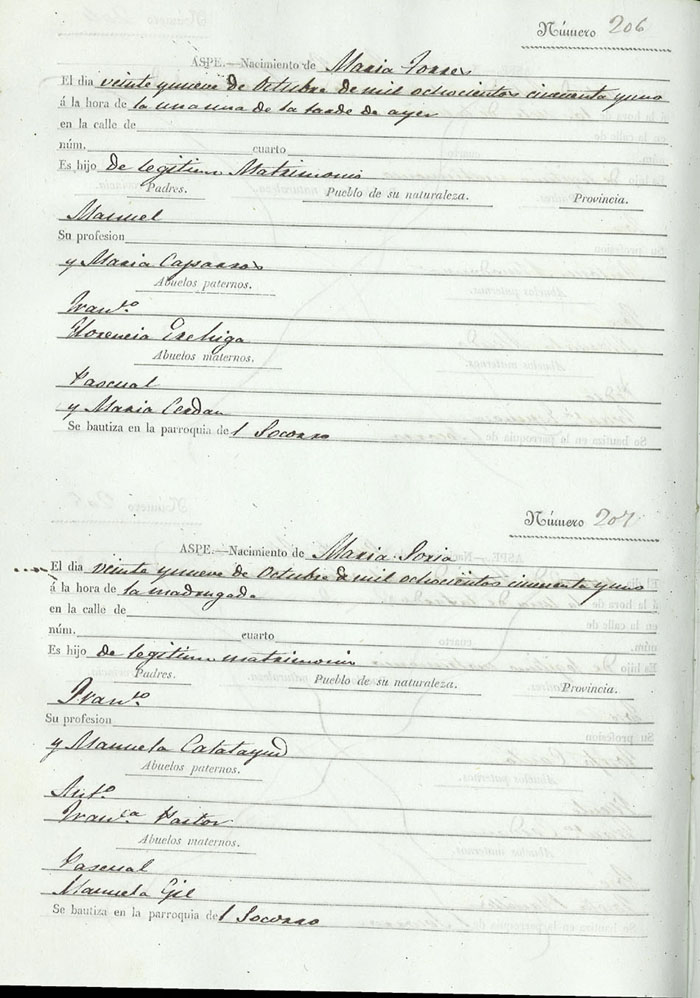 Número 206
ASPE.—Nacimiento de Maria Torres
El dia veinte y nueve de Octubre de mil ochocientos cincuenta y uno
á la hora de la una de la tarde de ayer
en la calle de
núm. cuarto
Es hijo de legitimo Matrimonio
Padres. Pueblo de su naturaleza. Provincia.
Manuel
Su profesion
y Maria Caparros
Abuelos paternos.
Fran.co
Florencia
Abuelos maternos.
Pascual
y Maria Cerdan
Se bautiza en la parroquia de l Socorro
Número 207
ASPE.—Nacimiento de Maria Soria
El dia veinte y nueve de Octubre de mil ochocientos cincuenta y uno
á la hora de la madrugada
en la calle de
núm. cuarto
Es hijo de legitimo matrimonio
Padres. Pueblo de su naturaleza. Provincia.
Fran.co
Su profesion
y Manuela Calatayud
Abuelos paternos.
Ant.o
Fran.ca Pastor
Abuelos maternos.
Pascual
Manuela Gil
Se bautiza en la parroquia de l Socorro